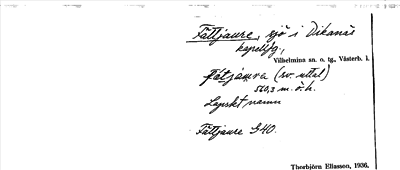 Fättjaure, sjö i Dikanäs
kapellfg,
Vilhelmina sn. o. tg., Västerb. l.
Fätjaura (sv. uttal)
560,3 m. ö. h.
Lapskt namn
Fättjaure S40.
Thorbjörn Eliasson, 1936.